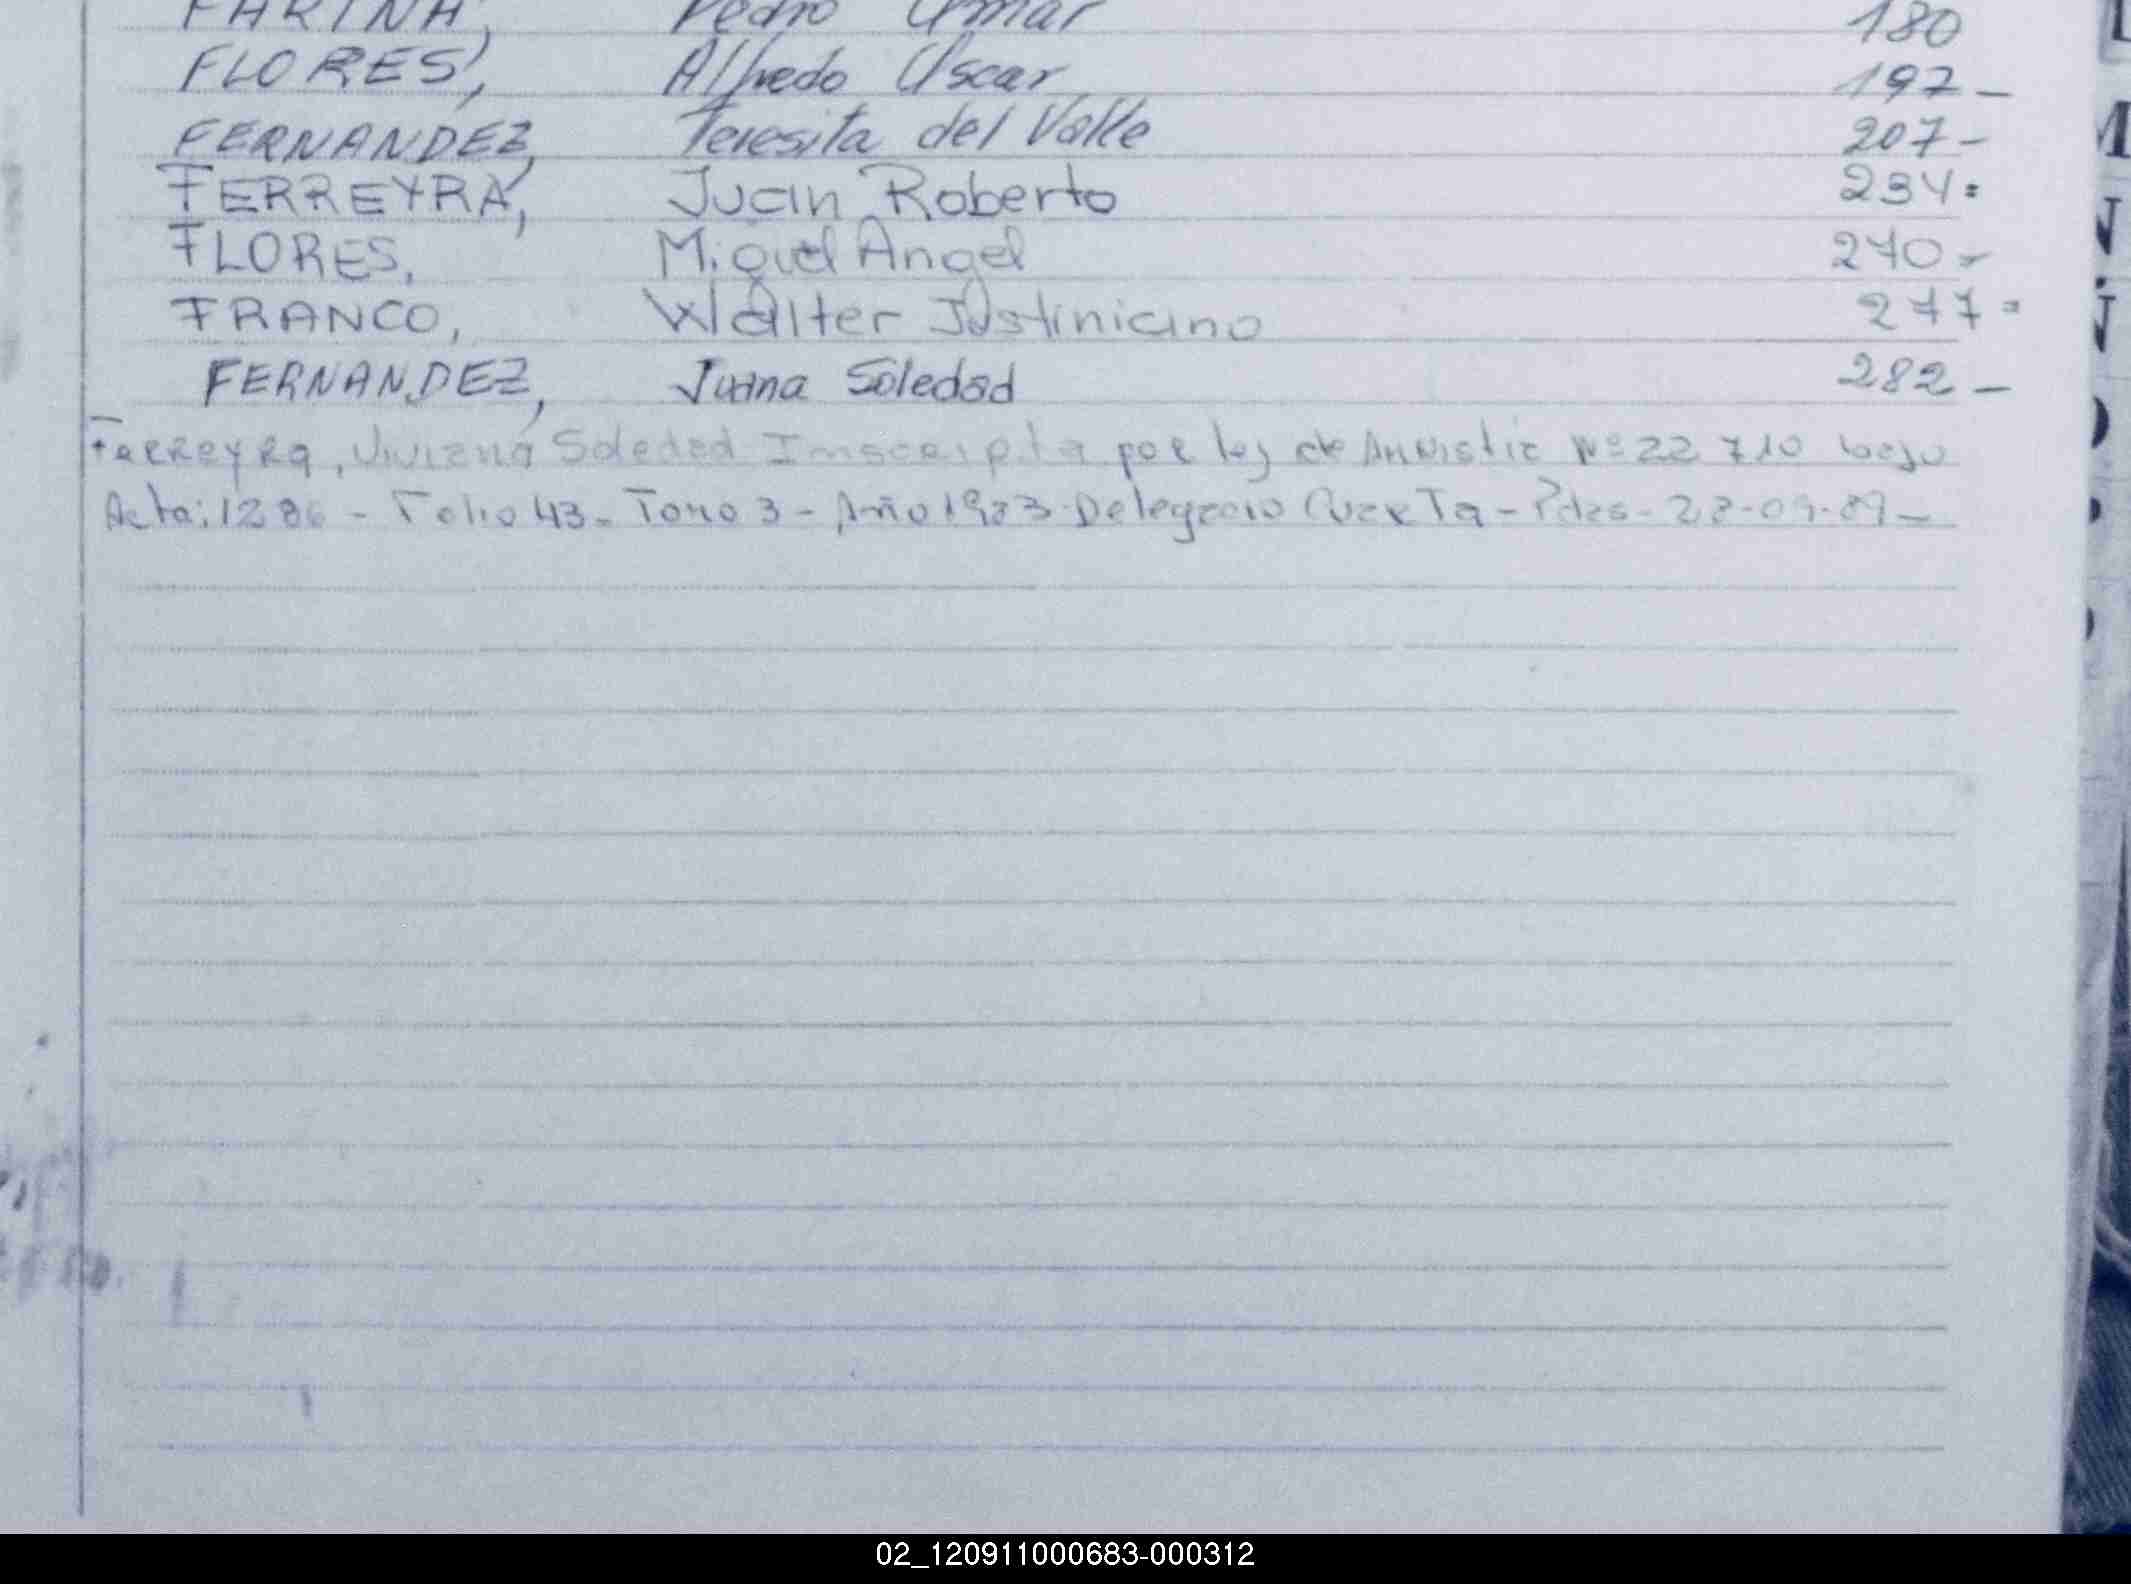 FARINA, Pedro Omar 180
FLORES, Alfredo Oscar 197-
FERNANDEZ, Teresita del Valle 207-
FERREYRA, Juan Roberto 234=
FLORES, Miguel Angel 270-
FRANCO, Walter Justiniano 277=
FERNANDEZ, Juana Soledad 282-
Ferreyra, Viviana Soledad Inscripta por ley de Amnistia Nº 22 710 bajo
Acta: 1286 - Folio 43 - Tomo 3 - Año 1983 - Delegacio Cuarta - Pdas - 28-09-89-
02_120911000683-000312